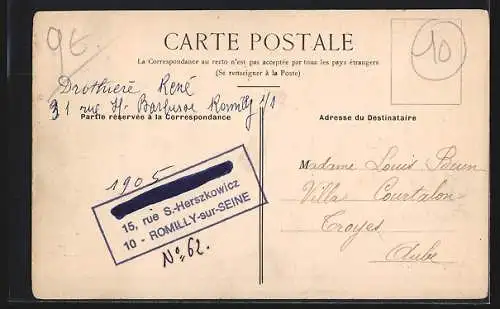 9€
10
CARTE POSTALE
La Correspondance au recto n'est pas acceptée par tous les pays étrangers
(Se renseigner à la Poste)
René
31 rue H. Barbusse Romilly s/s
Partie réservée à la Correspondance
Adresse du Destinataire
1905
15, rue S.-Herszkowicz
10 - ROMILLY-sur-SEINE
No 62.
Madame Louis
Villa Courtalon
Troyes
Aube